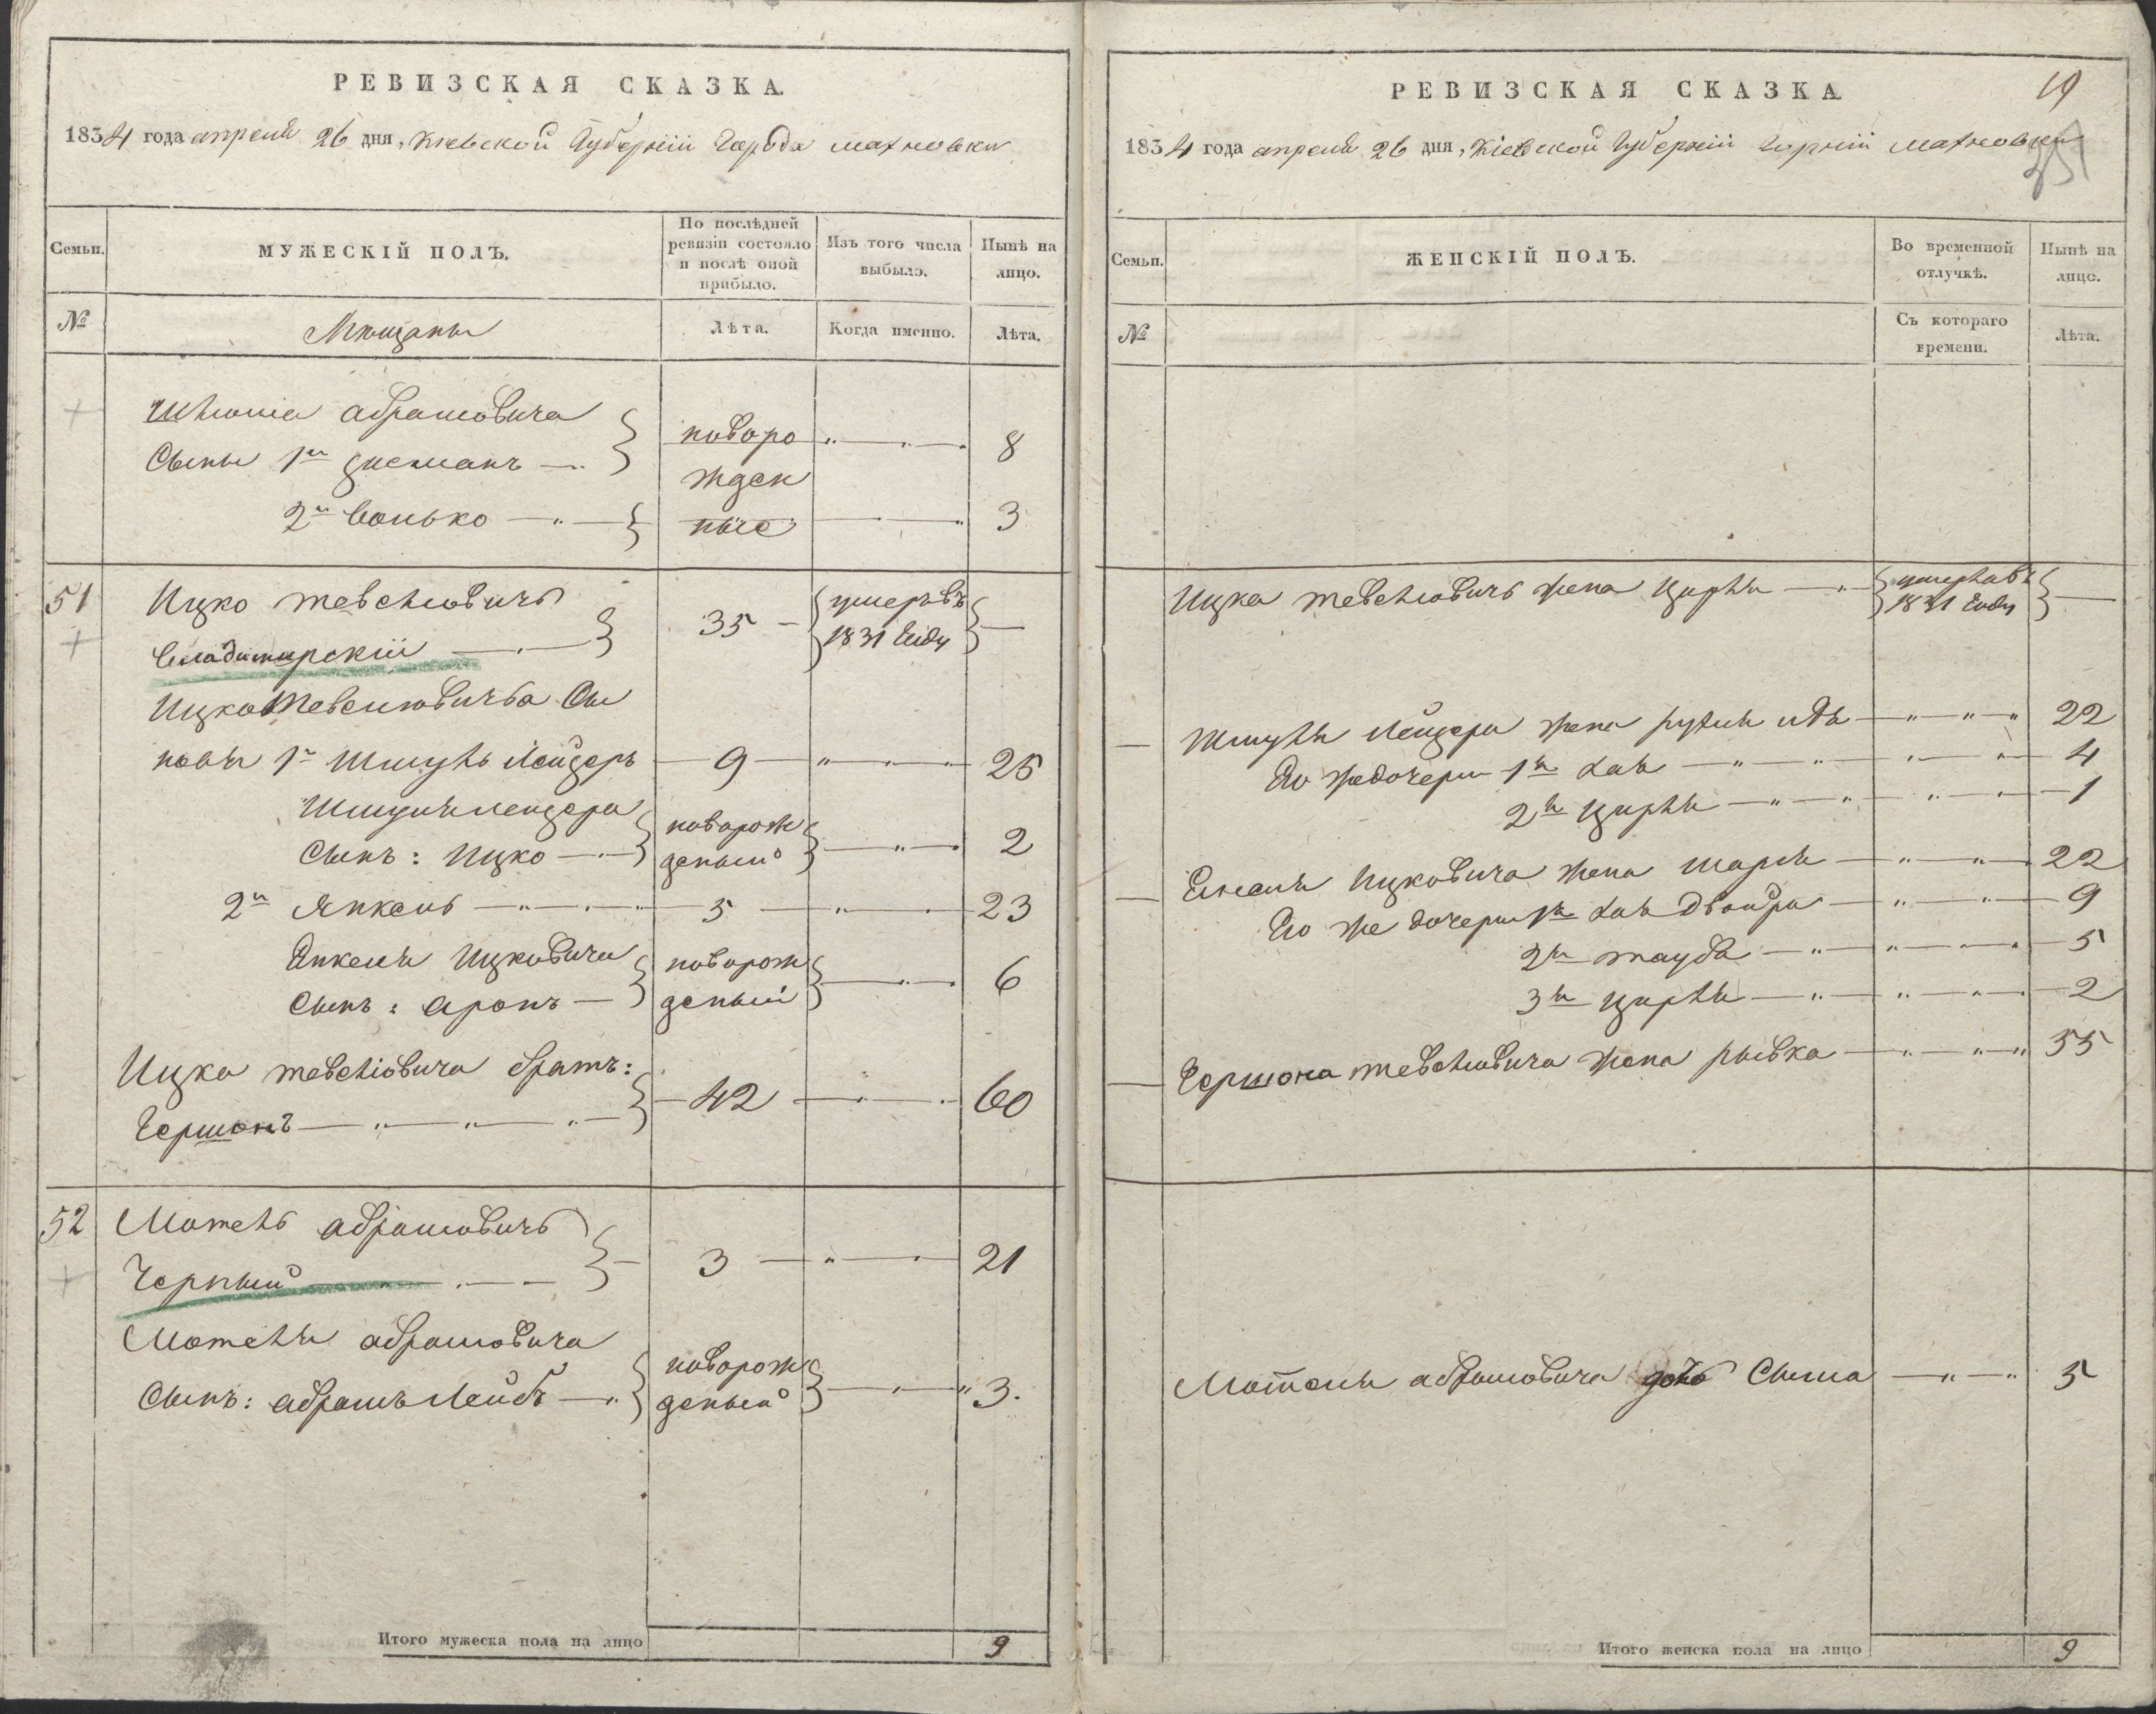 РЕВИЗСКАЯ СКАЗКА.
1834 года апреля 26 дня, Киевской Губернии Города Махновки
Семьи.
МУЖЕСКІЙ ПОЛЪ.
По послѣдней ревизіи состояло и послѣ оной прибыло.
Изъ того числа выбыло.
Нынѣ на лицо.
№
Мещаны
Лѣта.
Когда именно.
Лѣта.
абрамовича
Сыны 1й зисманъ
новоро
8
жден
2й волько
ные
3
51
Ицко тевелювичъ
35
умеръ въ
владимирскій
1831 Году
Ицка Тевелювича Сы
новья 1й Шмуль Лейзеръ
9
25
Шмуля лейзера
новорож
Сынъ: Ицко
деный
2
2й Янкель
5
23
Янкеля Ицковича
новорож
Сынъ: аронъ
деный
6
Ицка тевелювича братъ:
42
60
Гершонъ
52
Мотель абрамовичъ
3
21
Черный
Мотеля абрамовича
новорож
Сынъ: абрамъ Лейбъ
деный
3.
Итого мужеска пола на лицо
9
РЕВИЗСКАЯ СКАЗКА
19
1834 года апреля 26 дня, Кіевской Губерніи Махновки
Семьи.
ЖЕНСКІЙ ПОЛЪ.
Во временной отлучкѣ.
Нынѣ на лице.
№
Съ котораго времени.
Лѣта.
Ицка тевелювичъ жена Цирля
1831 Году
Шмуля Лейзера жена рухля
22
Его же дочери 1я хая
4
2я цирля
1
Янкеля Ицковича жена
22
Его же дочери 1я хая двойра
9
2я тауба
5
3я цирля
2
Гершона тевелювича жена рывка
55
Мотеля абрамовича дочь Сыма
5
Итого женска пола на лицо
9